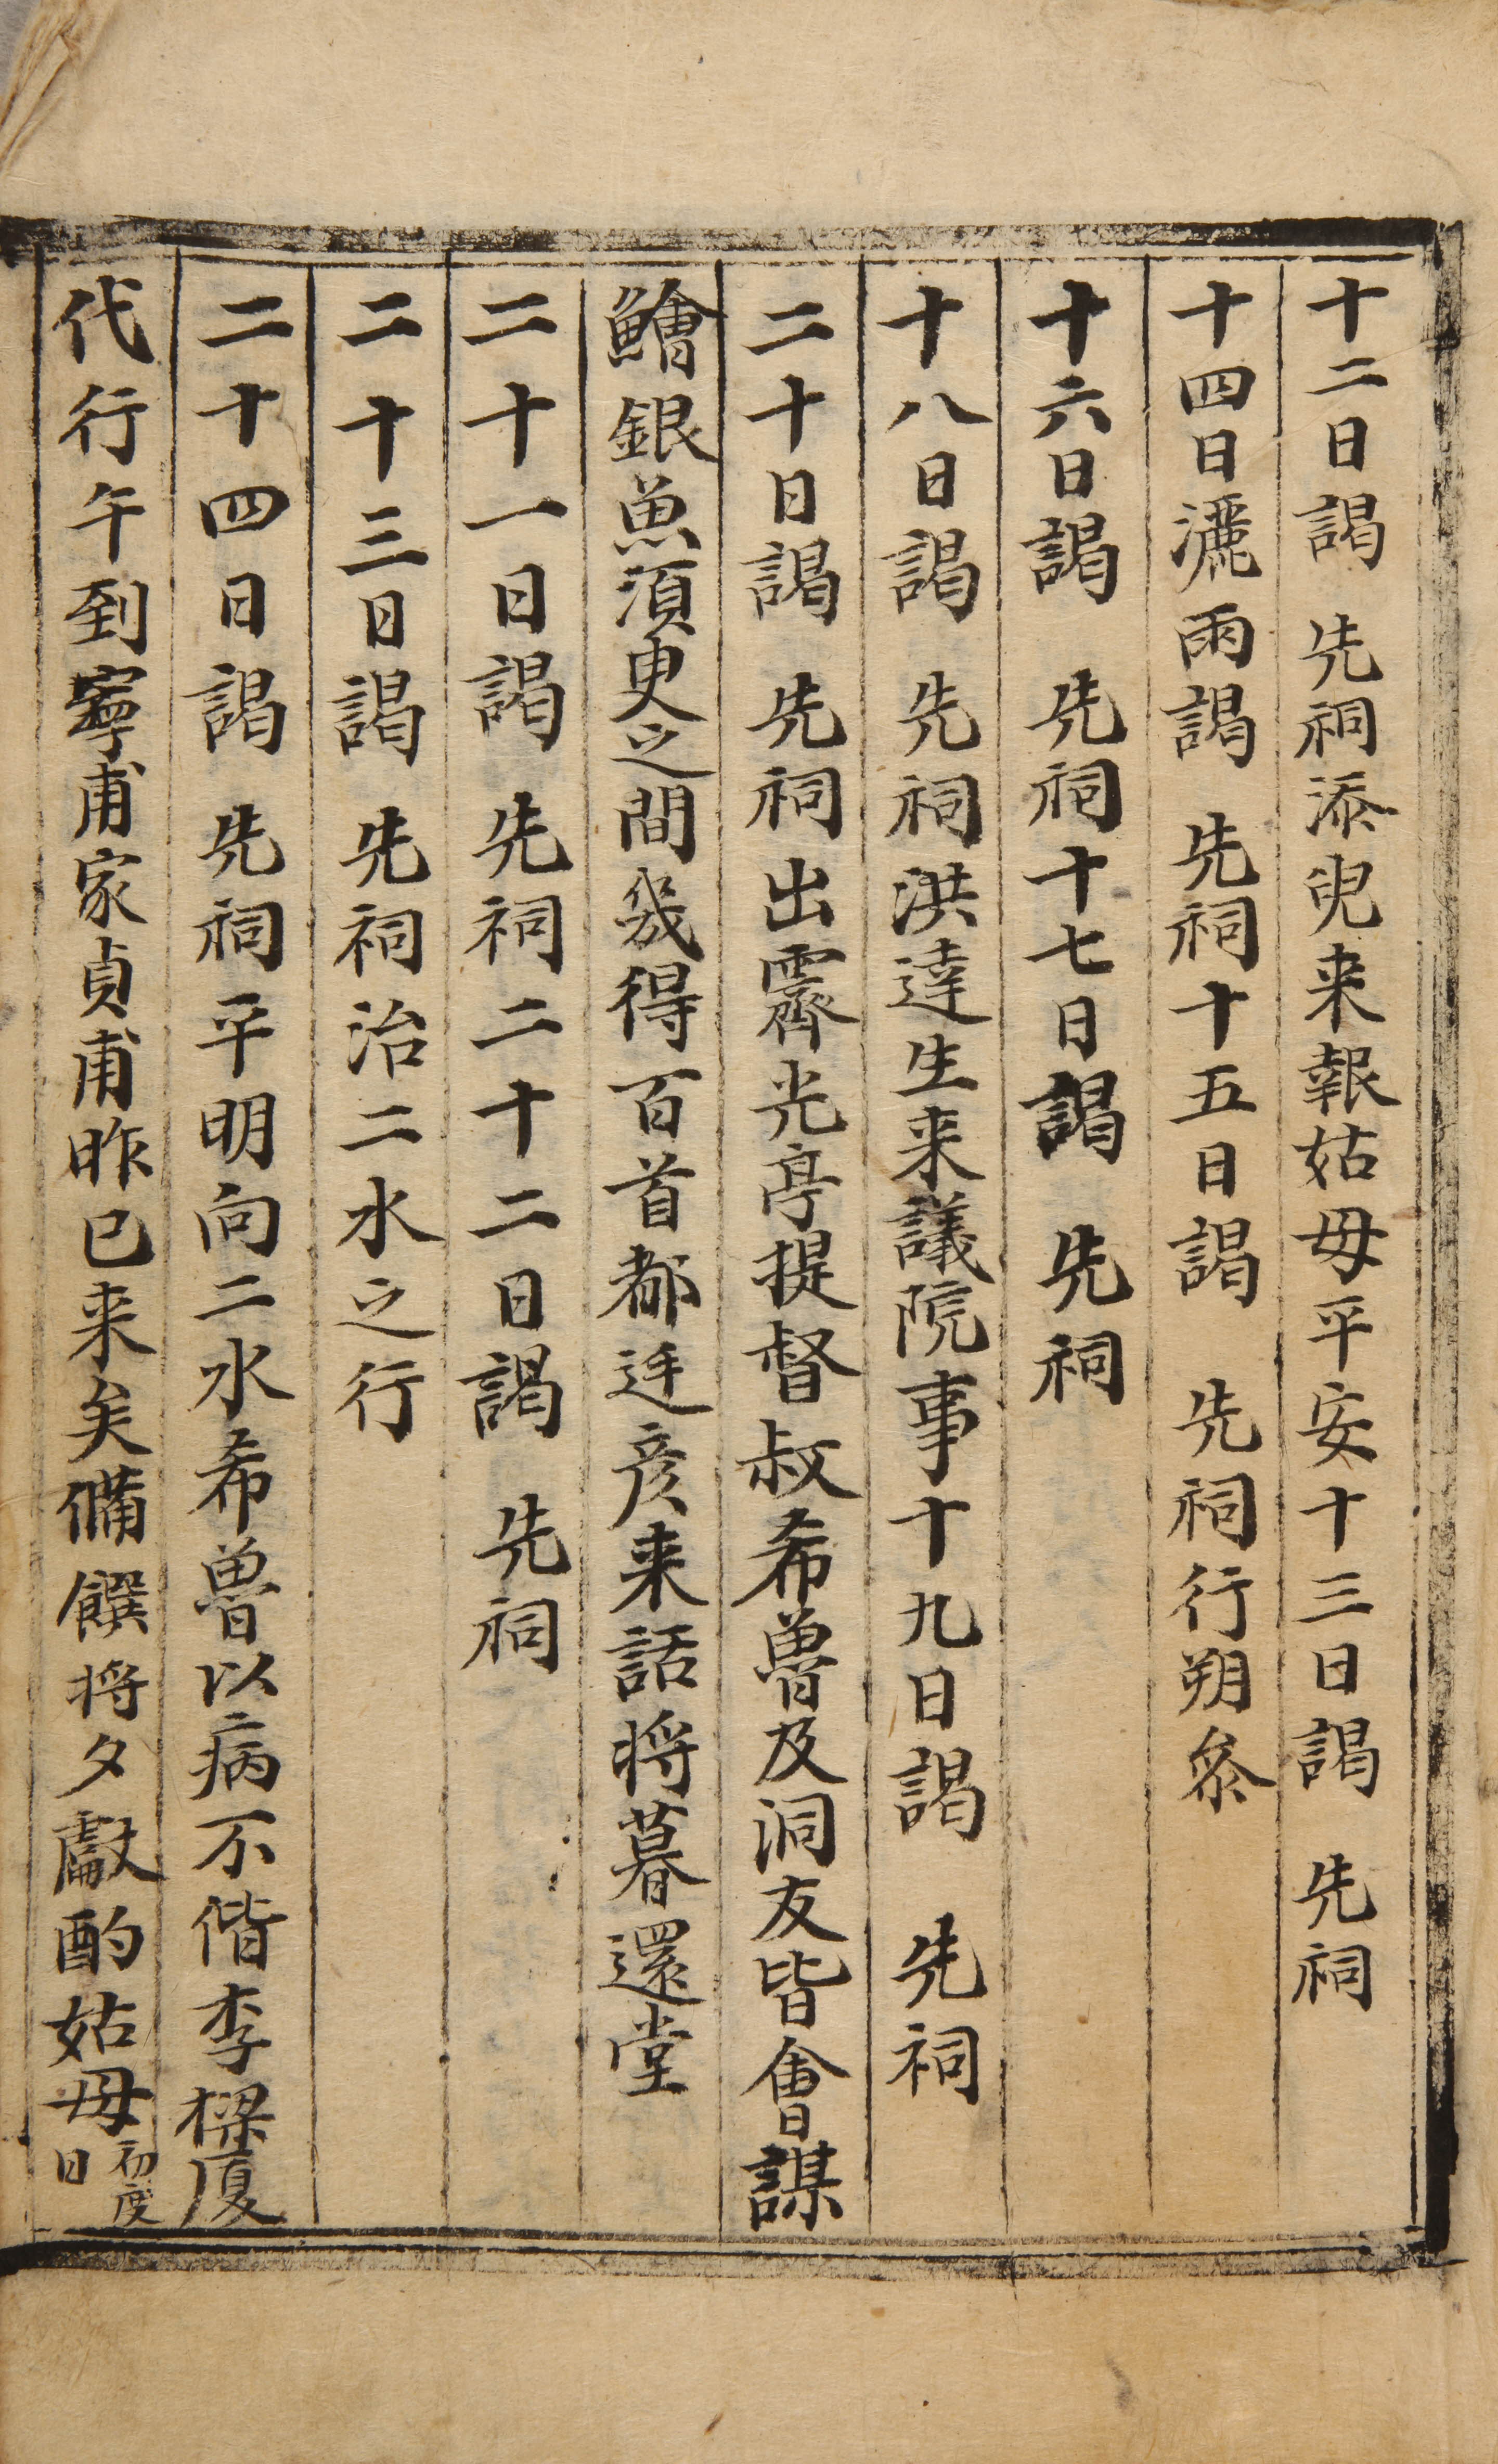 十二日謁 先祠添兒来報姑母平安十三日謁 先祠
十四日灑雨謁 先祠十五日謁 先祠行朔叅
十六日謁 先祠十七日謁 先祠
十八日謁 先祠洪達生来議院事十九日謁 先祠
二十日謁 先祠出霽光亭提督叔希魯及洞友皆會謀
鱠銀魚須臾之間幾得百首都廷彦来話将暮還堂
二十一日謁 先祠二十二日謁 先祠
二十三日謁 先祠治二水之行
二十四日謁 先祠平明向二水希魯以病不偕李樑厦
代行午到寧甫家貞甫昨已来矣備饌将夕獻酌姑母初度日